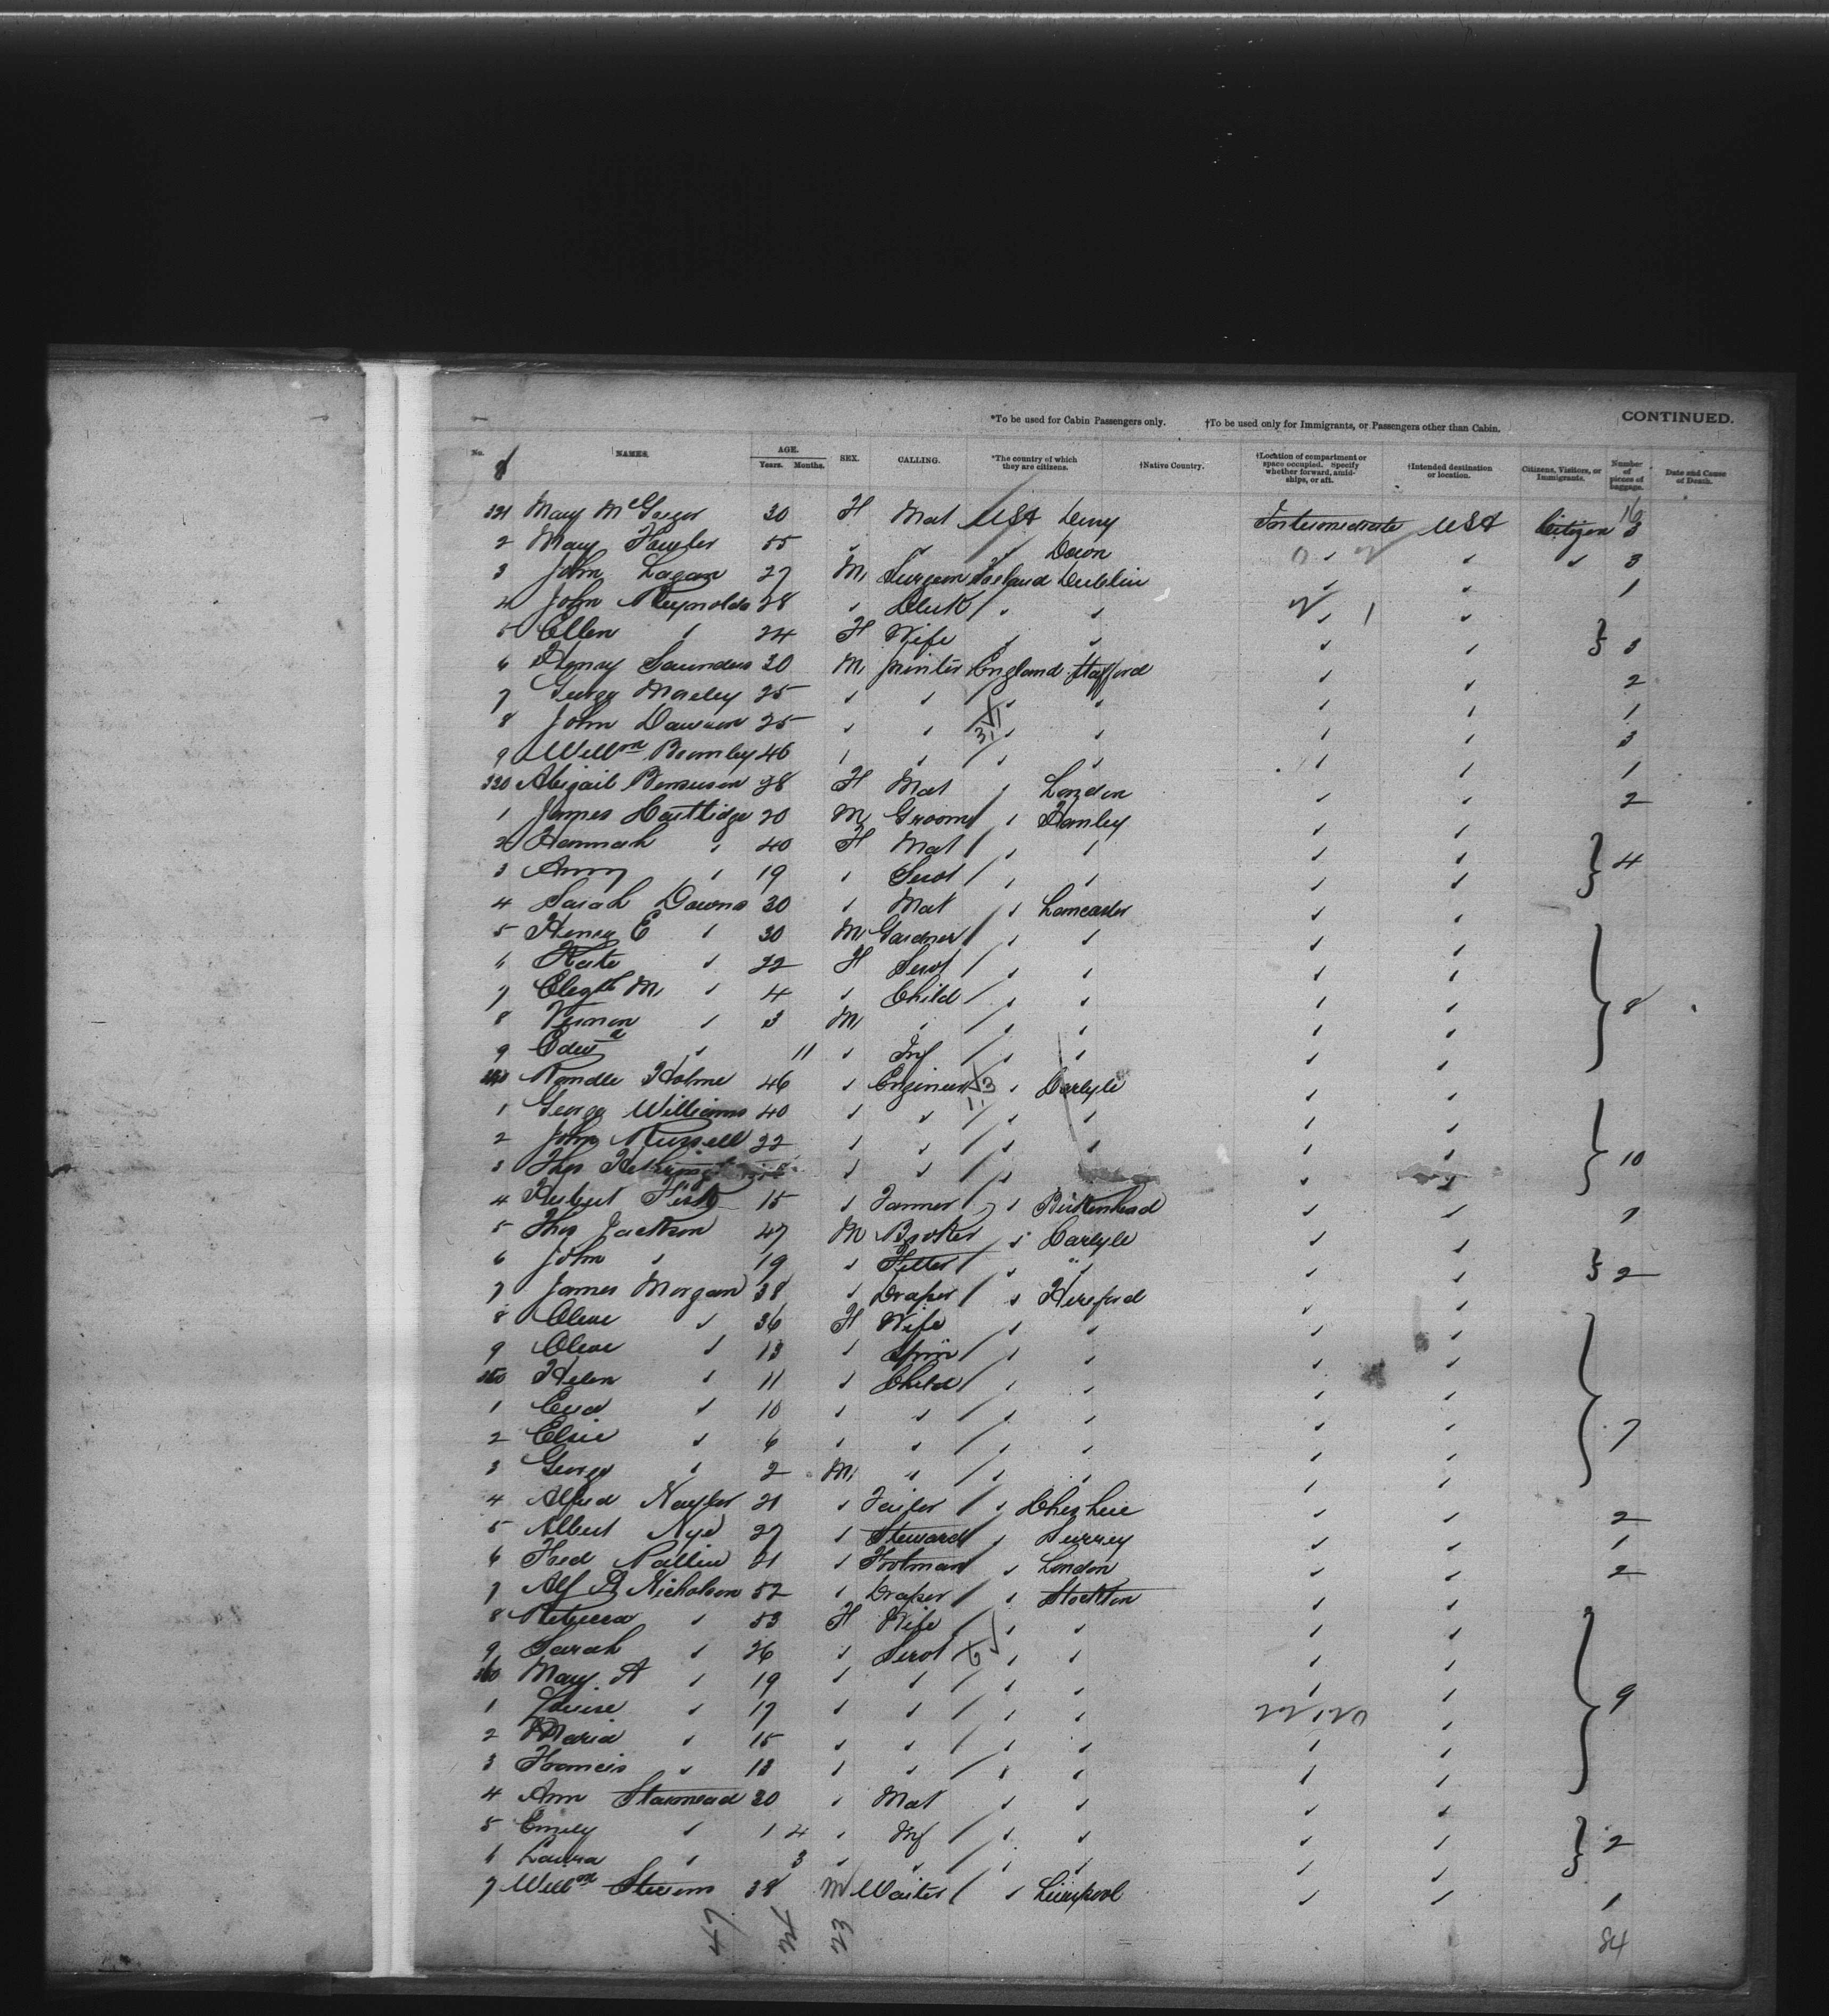 *To be used for Cabin Passengers only. †To be used only for Immigrants, or Passengers other than Cabin. CONTINUED.
No. NAMES. AGE. Years. Months. SEX. CALLING. *The country of which they are citizens. †Native Country. †Location of compartment or space occupied. Specify whether forward, amidships, or aft. †Intended destination or location. Citizens, Visitors, or Immigrants. Number of pieces of baggage. Date and Cause of Death.
8
16
321 Mary McGregor 30 F Mat USA Derry Intermediate USA Citizen 3
2 Mary Fowler 55 Down 3
3 John Lagan 27 M Surgeon Ireland Dublin 1
4 John Reynolds 28 Clerk
5 Ellen 24 F Wife 3
6 Henry Saunders 30 M printer England Stafford 2
7 George Mosley 25 1
8 John Dawson 25 3
9 Willm Bromley 46 1
330 Abigail 28 F Mat London 2
1 James Hartlidge 20 M Groom Hanley
2 Hannah 40 F Mat 4
3 Amy 19 Servt
4 Sarah Downs 30 Mat Lancaster
5 Henry E 30 M Gardner
6 Kate 22 F Servt
7 Elizth M 4 Child 8
8 Vernon 3 M
9 Edwd 11 Inf
340 Randle Holme 46 Engineer Carlyle
1 George Williams 40
2 John Russell 22 10
3 Thos
4 Hubert Fisk 15 Farmer Birkenhead 1
5 Thos Jackson 47 M Broker Carlyle
6 John 19 Fitter 2
7 James Morgan 38 Draper Hereford
8 Clear 36 F Wife
9 Clear 13 Spin
350 Helen 11 Child
1 10
2 Elsie 6 7
3 George 2 M
4 Alfred Naylor 21 Tailor Cheshire 2
5 Albert Nye 27 Steward Surrey 1
6 Fred 21 Footman London 2
7 Alf Nicholson 52 Draper Stockton
8 Rebecca 53 F Wife
9 Sarah 26 Servt
360 Mary A 19
1 Louise 17 9
2 Maria 15
3 Francis 13
4 Ann Stairmead 30 Mat
5 Emily 1 4 Inf 2
6 Laura 3
7 Willm Stevens 38 M Waiter Liverpool 1
47 24 23 84